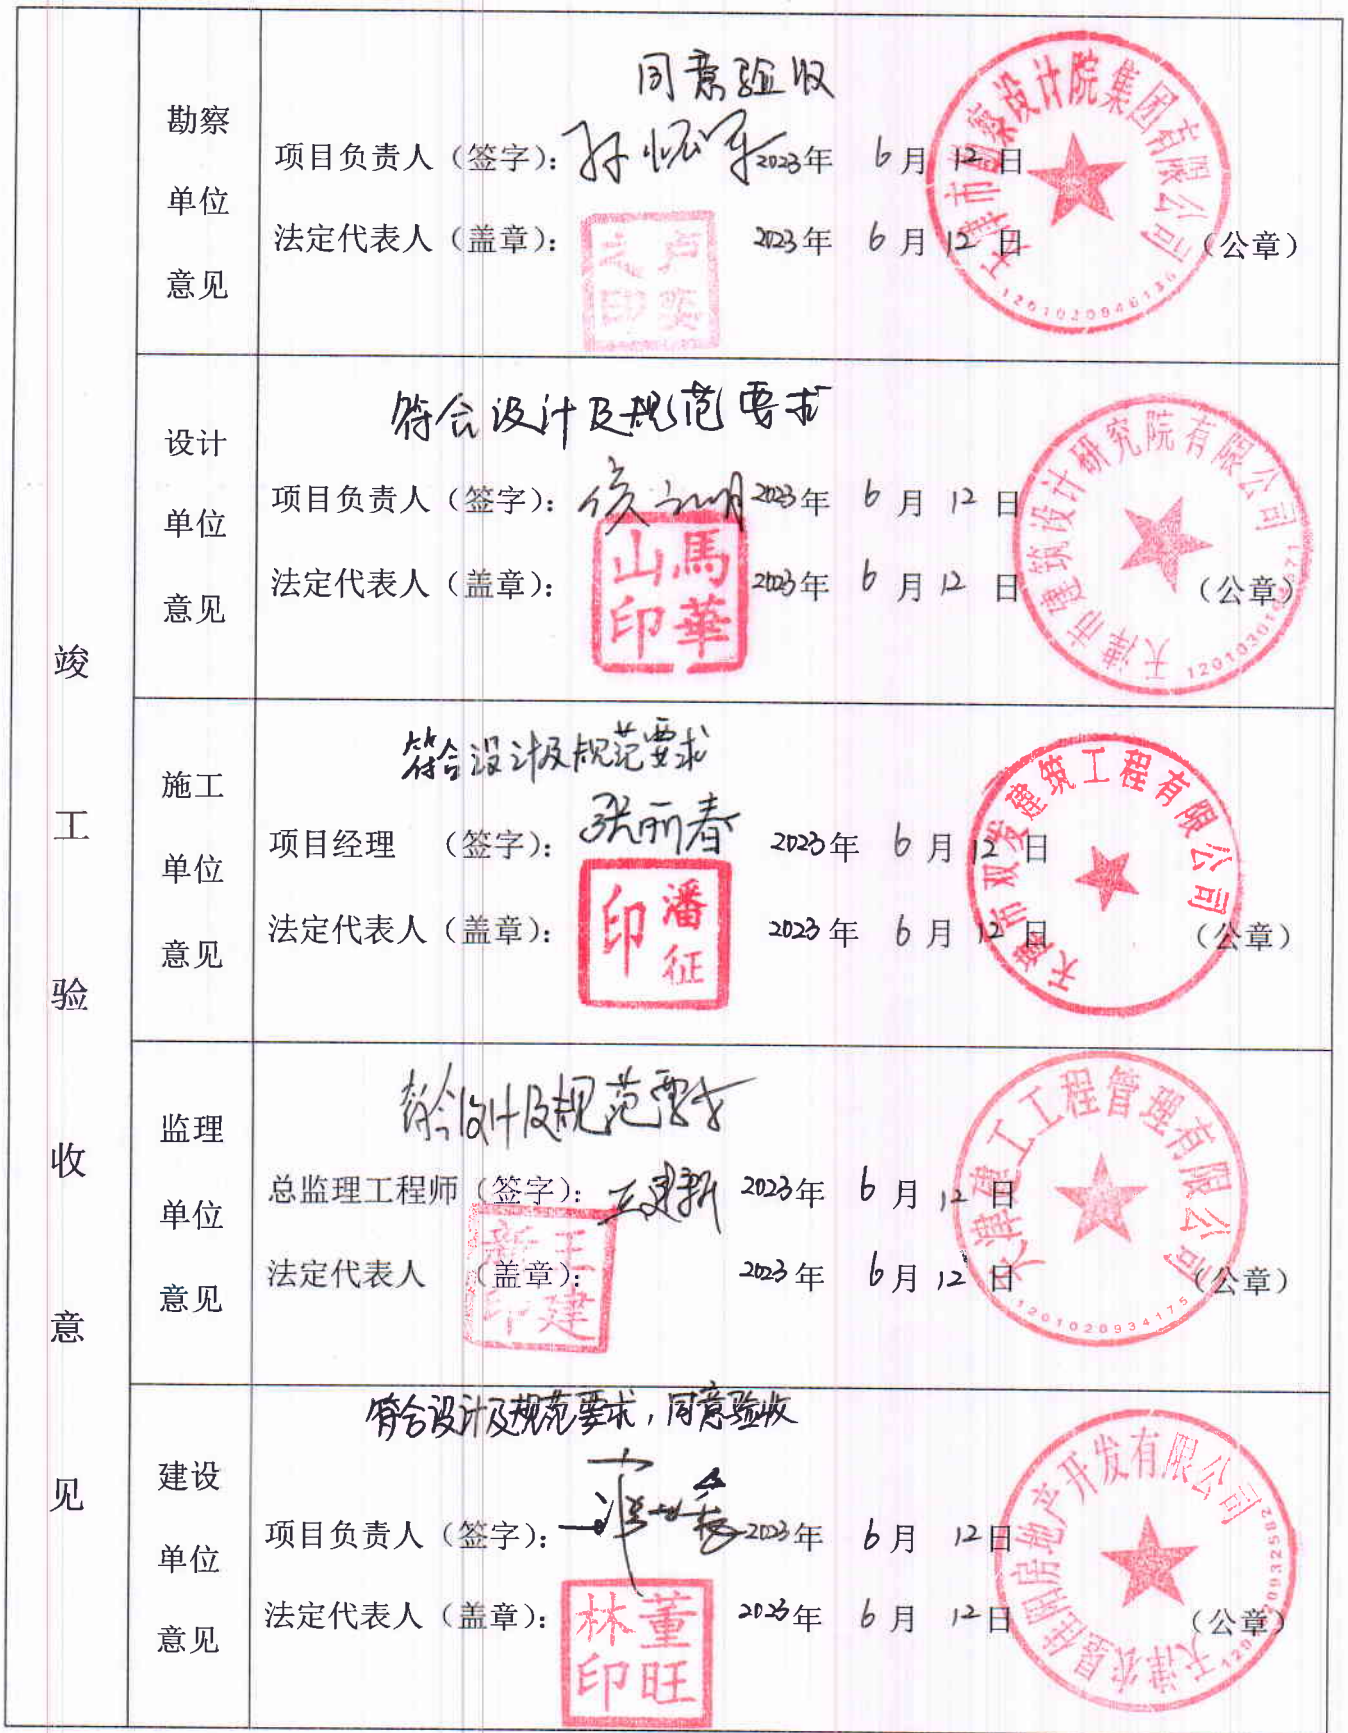 竣工验收意见
勘察单位意见
同意验收
项目负责人（签字）： 2023年 6月 12日
法定代表人（盖章）： 2023年 6月 12日 （公章）
卢奕之印
天津市勘察设计院集团有限公司
设计单位意见
符合设计及规范要求
项目负责人（签字）： 2023年 6月 12日
法定代表人（盖章）： 2023年 6月 12日 （公章）
馬華山印
天津市建筑设计研究院有限公司
施工单位意见
符合设计及规范要求
项目经理 （签字）：张丽春 2023年 6月 12日
法定代表人（盖章）： 2023年 6月 12日 （公章）
潘征印
天津市双发建筑工程有限公司
监理单位意见
符合设计及规范要求
总监理工程师（签字）：王建新 2023年 6月 12日
法定代表人 （盖章）： 2023年 6月 12日 （公章）
王建新印
天津建工工程管理有限公司
1201020934175
建设单位意见
符合设计及规范要求，同意验收
项目负责人（签字）： 2023年 6月 12日
法定代表人（盖章）： 2023年 6月 12日 （公章）
董旺林印
房地产开发有限公司